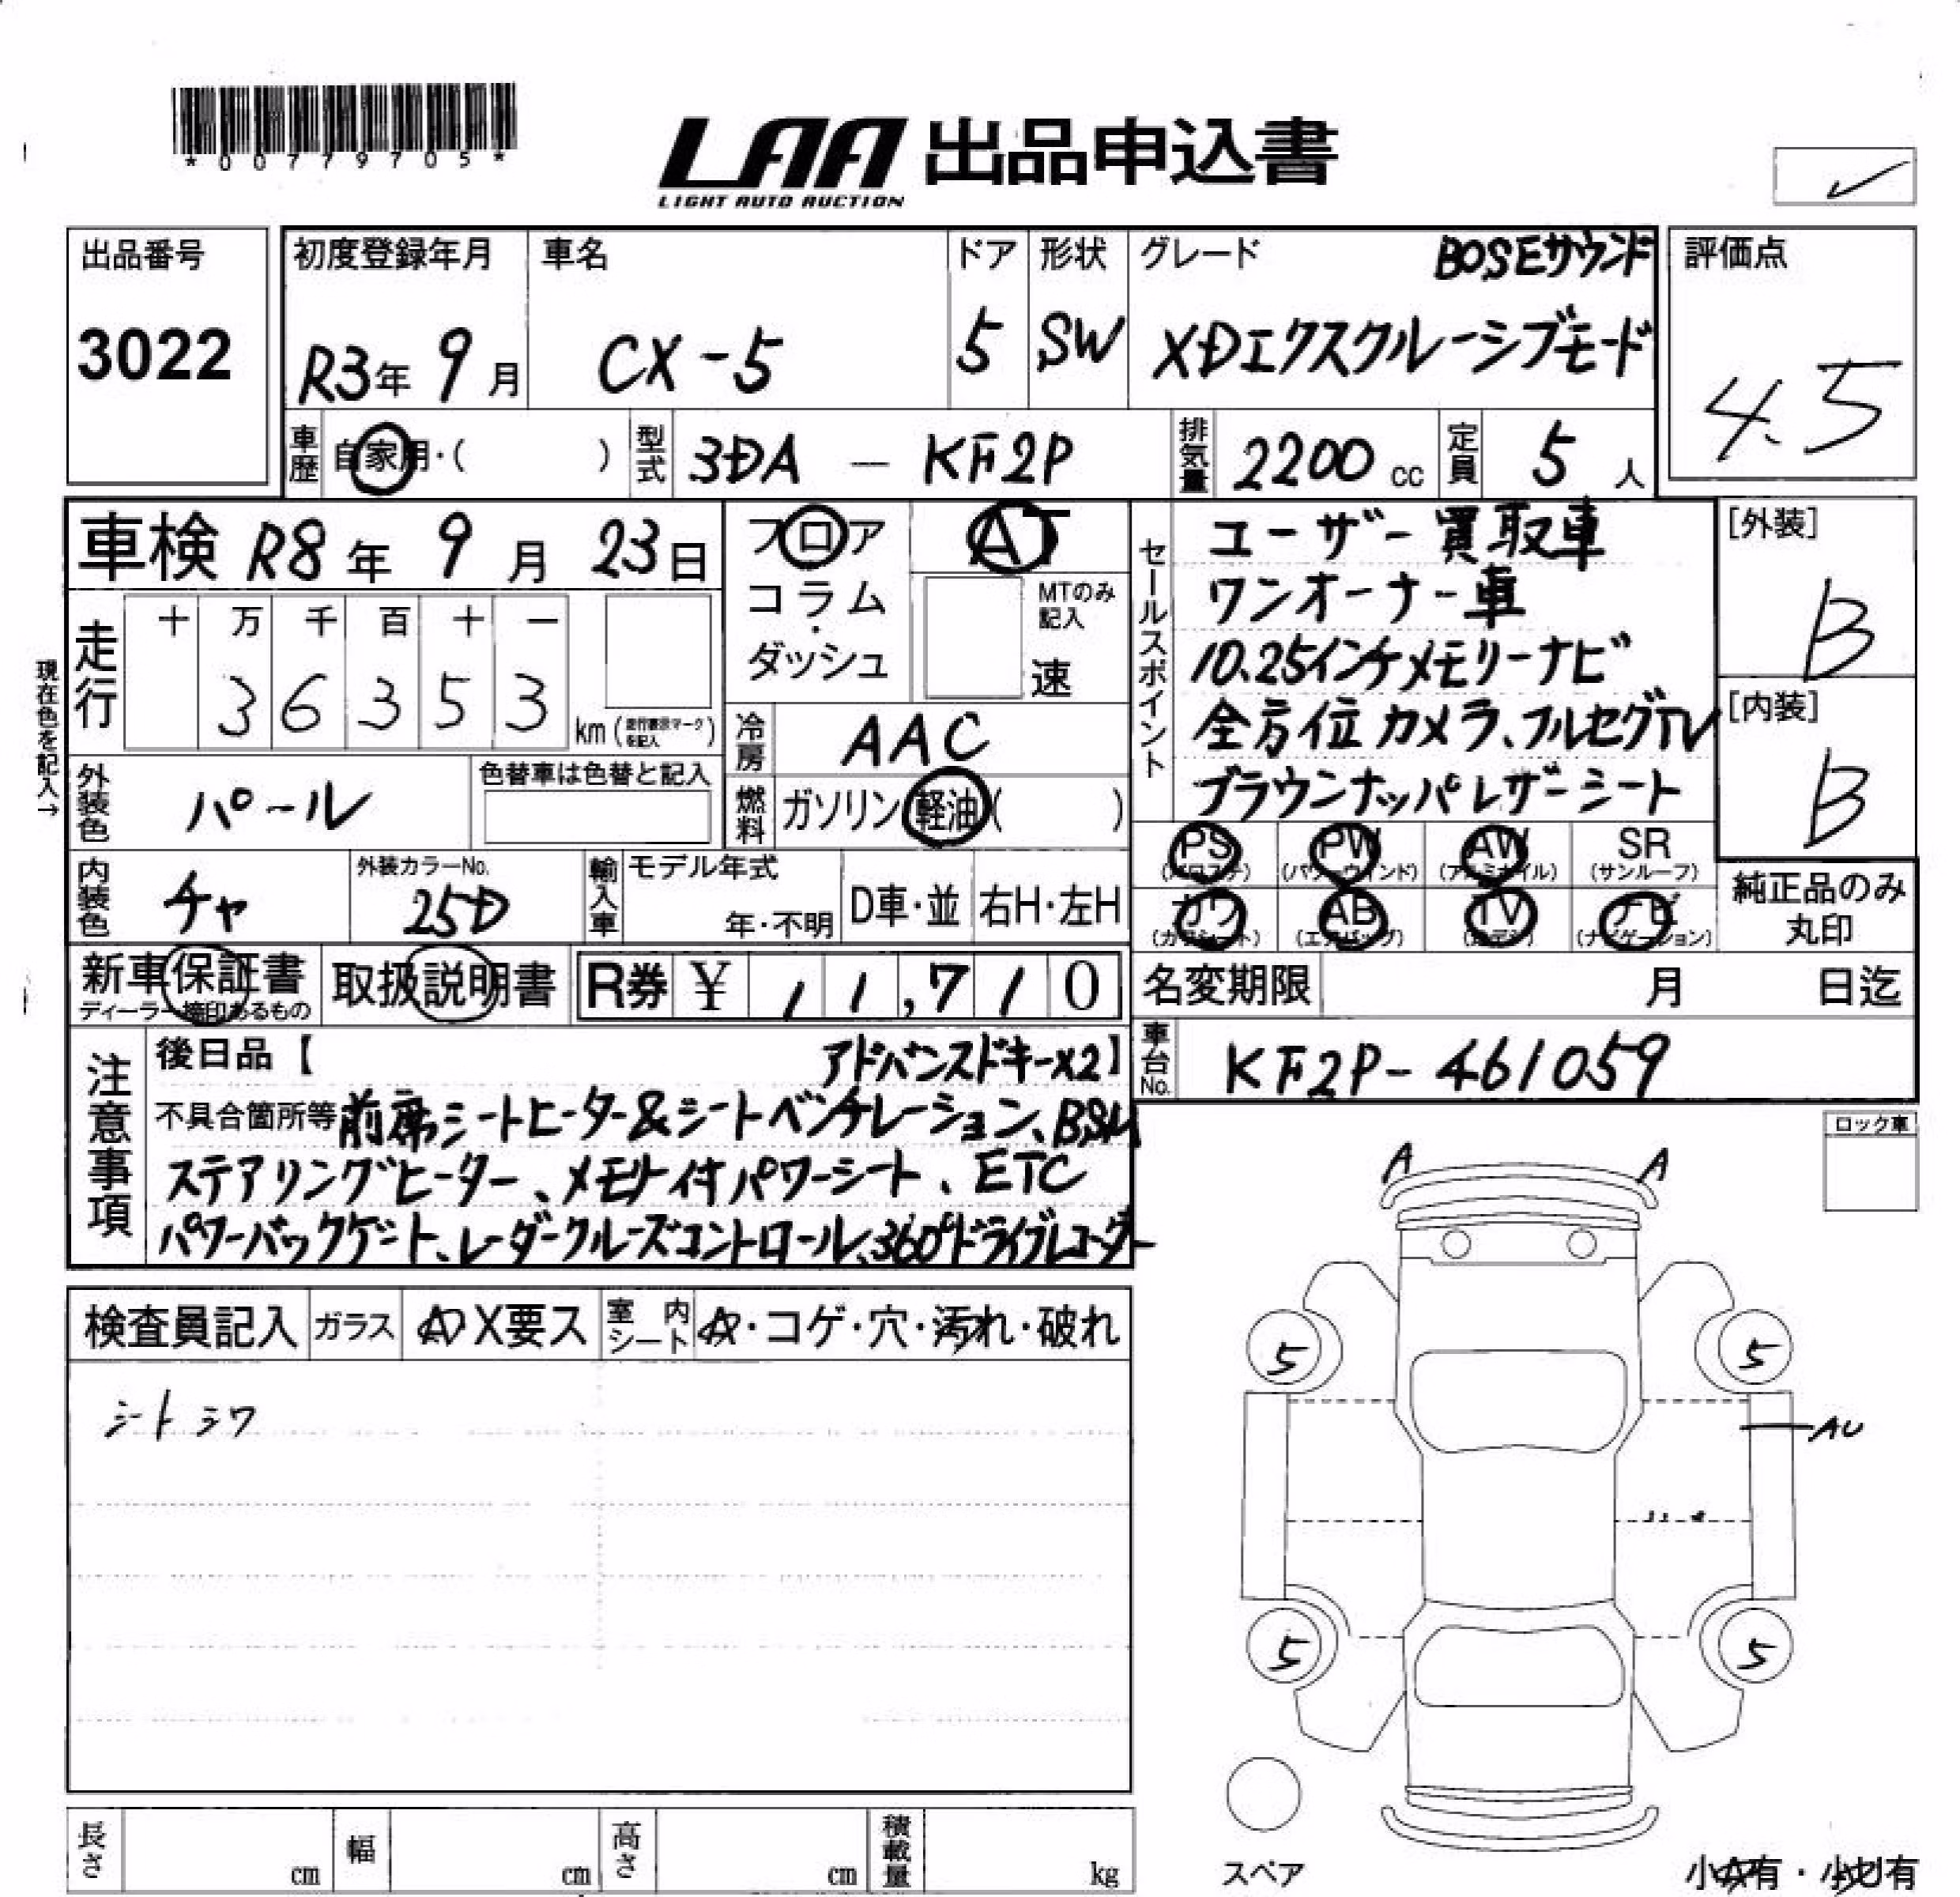 *00779705*
LAA 出品申込書
LIGHT AUTO AUCTION
出品番号
3022
初度登録年月
R3年 9月
車名
CX-5
ドア
5
形状
SW
グレード BOSEサウンド
XDエクスクルーシブモード
評価点
4.5
車歴 自家用・( )
型式 3DA - KF2P
排気量 2200 cc
定員 5 人
車検 R8年 9月 23日
フロア
コラム
・
ダッシュ
AT
MTのみ
記入
速
セールスポイント
ユーザー買取車
ワンオーナー車
10.25インチメモリーナビ
全方位カメラ、フルセグTV
ブラウンナッパレザーシート
[外装]
B
[内装]
B
現在色を記入→
走行
十 万 千 百 十 一
3 6 3 5 3
km (走行表示マークを記入)
冷房 AAC
燃料 ガソリン 軽油 ( )
外装色 パール
色替車は色替と記入
内装色 チャ
外装カラーNo.
25D
輸入車
モデル年式
年・不明
D車・並
右H・左H
PS
(パワステ)
PW
(パワーウインド)
AW
(アルミホイル)
SR
(サンルーフ)
カワ
(カワシート)
AB
(エアバッグ)
TV
ナビ
(ナビゲーション)
純正品のみ
丸印
新車保証書
ディーラー捺印あるもの
取扱説明書
R券 ¥ 11,710
名変期限 月 日迄
車台No. KF2P-461059
注意事項
後日品【 アドバンスドキー×2】
不具合箇所等 前席シートヒーター&シートベンチレーション、BSM
ステアリングヒーター、メモリー付パワーシート、ETC
パワーバックゲート、レーダークルーズコントロール、360°ドライブレコーダー
ロック車
検査員記入
ガラス
X要ス
室内シート
・コゲ・穴・汚れ・破れ
シートシワ
A
A
5
5
AU
5
5
スペア
長さ cm
幅 cm
高さ cm
積載量 kg
小A有・小U有